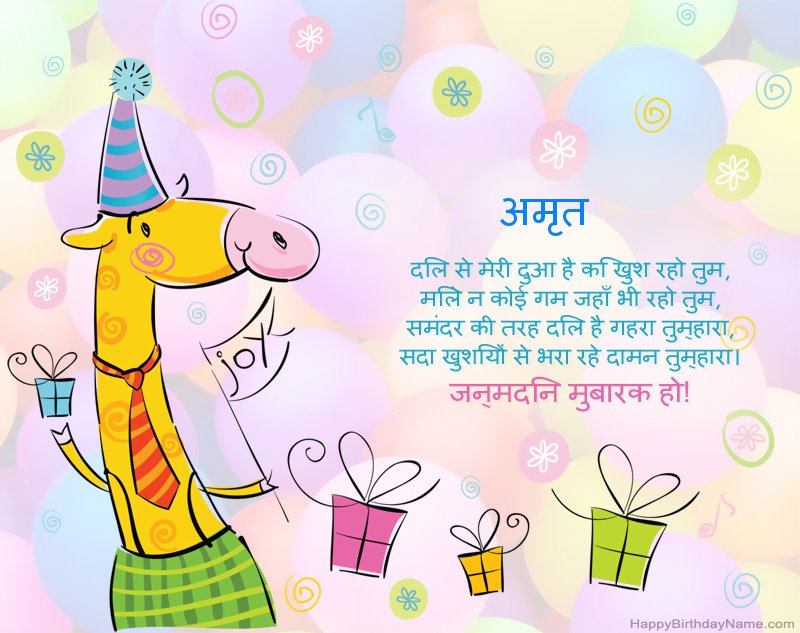 अमृत
दलि से मेरी दुआ है कि खुश रहो तुम,
मलिे न कोई गम जहाँ भी रहो तुम,
समंदर की तरह दलि है गहरा तुम्हारा,
सदा खुशयिों से भरा रहे दामन तुम्हारा।
जन्मदनि मुबारक हो!
joy
HappyBirthdayName.com